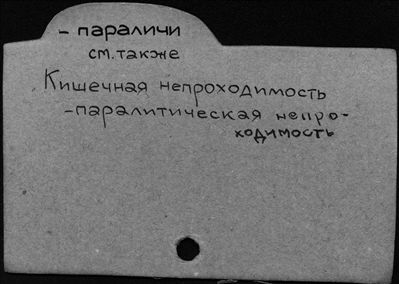 - параличи
см. также
Кишечная непроходимость
- паралитическая непро-
ходимость